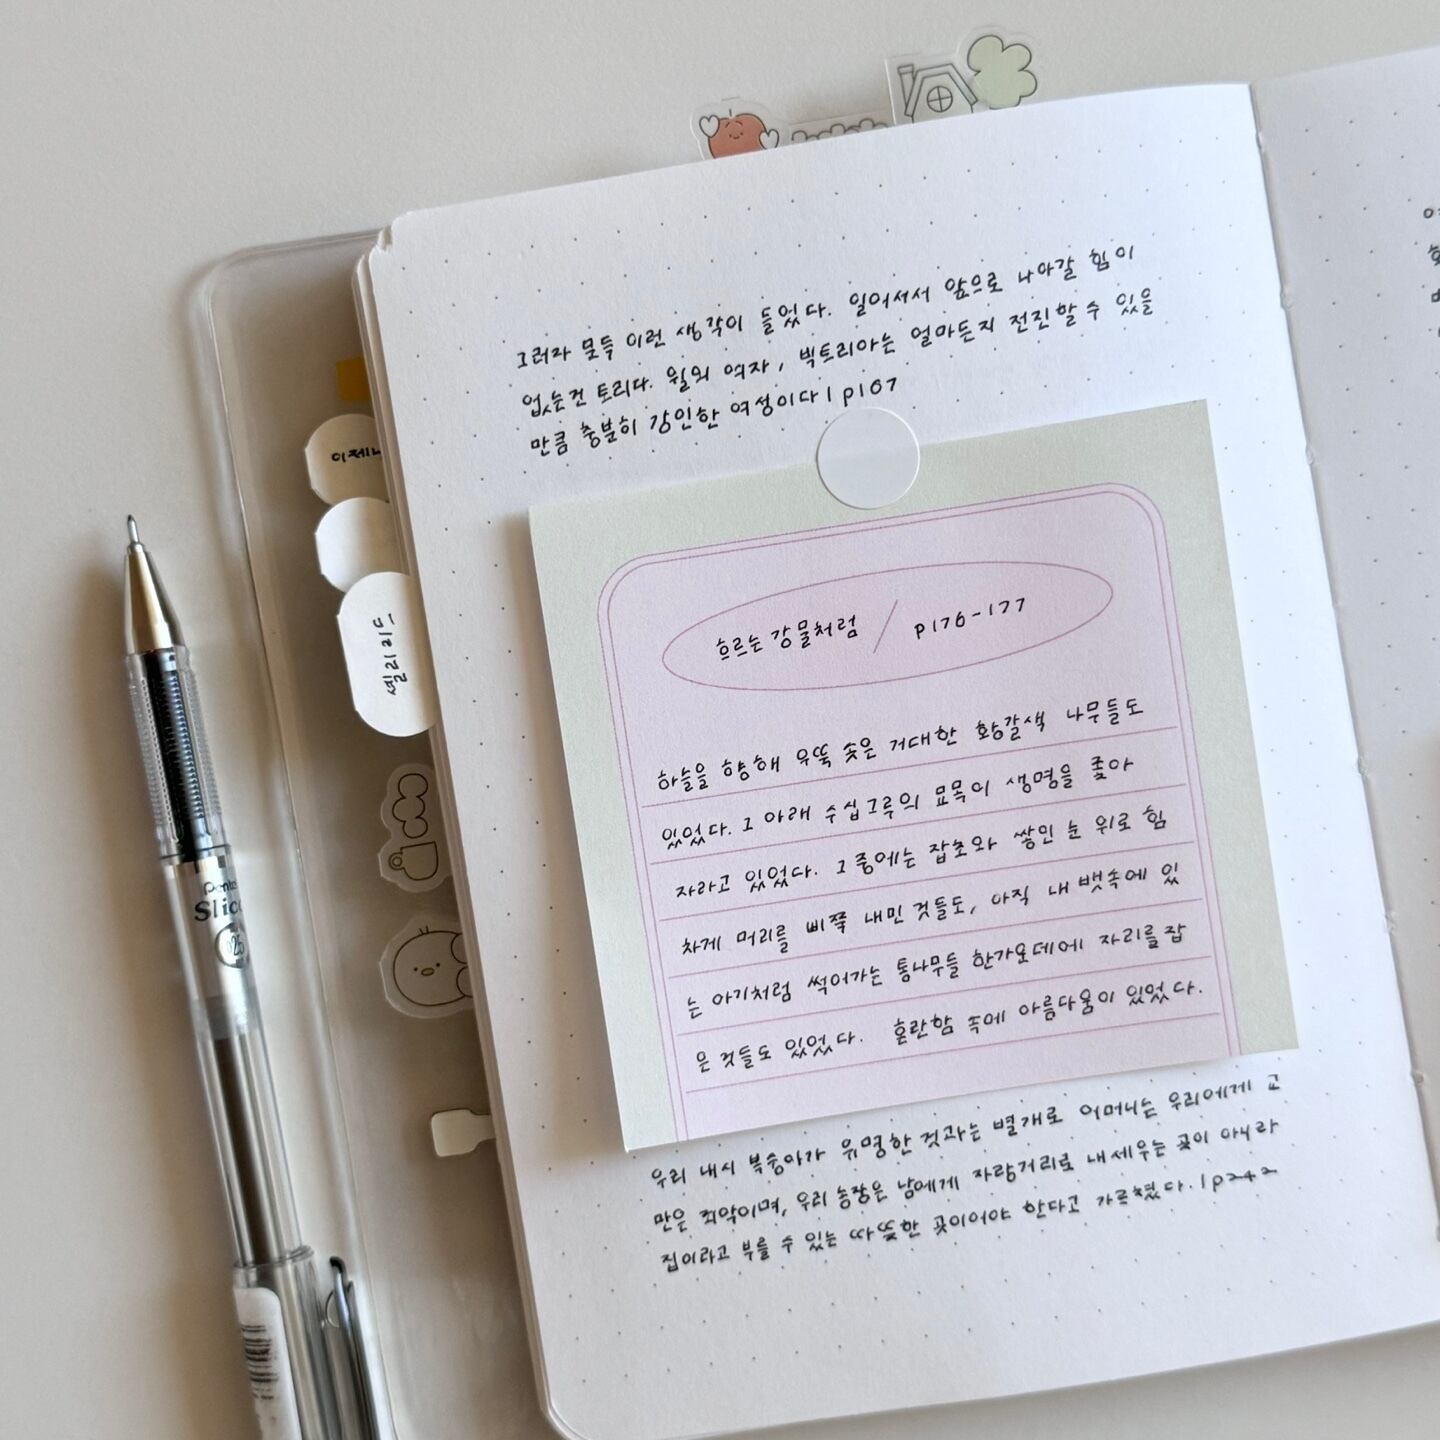 그러자 문득 이런 생각이 들었다. 일어서서 앞으로 나아갈 힘이
없는건 토리다. 윌의 여자, 빅토리아는 얼마든지 전진할 수 있을
만큼 충분히 강인한 여성이다 | p167
흐르는 강물처럼 / p176-177
하늘을 향해 우뚝 솟은 거대한 황갈색 나무들도
있었다. 그 아래 수십그루의 묘목이 생명을 좇아
자라고 있었다. 그 중에는 잡초와 쌓인 눈 위로 힘
차게 머리를 삐쭉 내민 것들도, 아직 내 뱃속에 있
는 아기처럼 썩어가는 통나무들 한가운데에 자리를 잡
은 것들도 있었다. 혼란함 속에 아름다움이 있었다.
우리 내시 복숭아가 유명한 것과는 별개로 어머니는 우리에게 교
만은 죄악이며, 우리 농장은 남에게 자랑거리로 내세우는 곳이 아니라
집이라고 부를 수 있는 따뜻한 곳이어야 한다고 가르쳤다. | p242
이제
셀리리드
Pente
Slicc
025